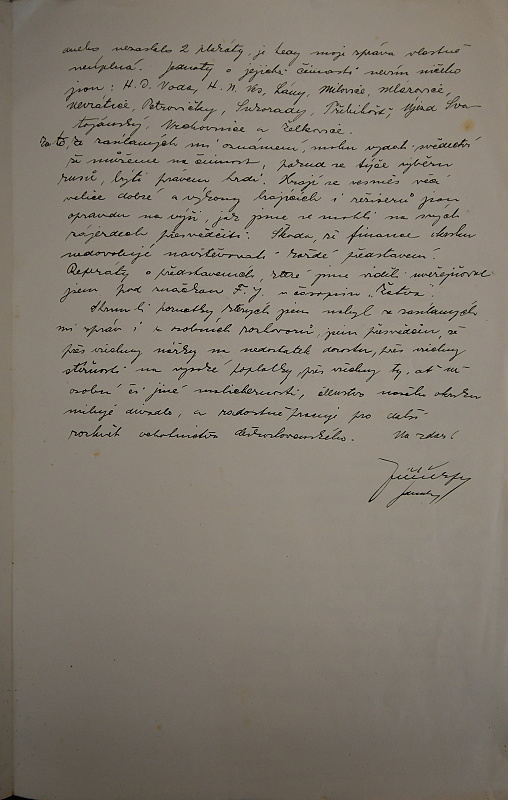 anebo nezaslalo 2 plakáty, je tedy moje zpráva vlastně
neúplná. Jednoty o jejichž činnosti nevím ničeho
jsou: H. D. Voda, H. N. Ves, Lány, Milovice, Mlázovice,
Nevratice, Petrovičky, Sukorady, Třebihošť, Újezd Sva-
tojánský, Vrchovnice a Želkovice.
Za to, ze zaslaných mi oznámení, mohu vydati svědectví
že můžeme na činnost, pokud se týče výběru
kusů, býti právem hrdi. Hrají se vesměs věci
velice dobré a výkony hrajících i režiserů jsou
opravdu na výši, jak jsme se mohli na svých
zájezdech přesvědčiti. Škoda, že finance okrsku
nedovolují navštěvovati každé představení.
Referáty o představeních, které jsme viděli uveřejňoval
jsem pod značkou F. J. v časopisu „
Shrnu-li poznatky kterých jsem nabyl ze zaslaných
mi zpráv i z osobních rozhovorů, jsem přesvědčen, že
přes všechny nářky na nedostatek dorostu, přes všechny
stížnosti na vysoké poplatky, přes všechny ty, ať už
osobní či jiné malichernosti, členstvo našeho okrsku
miluje divadlo, a radostně pracuje pro další
rozkvět ochotnictva československého. Na zdar!